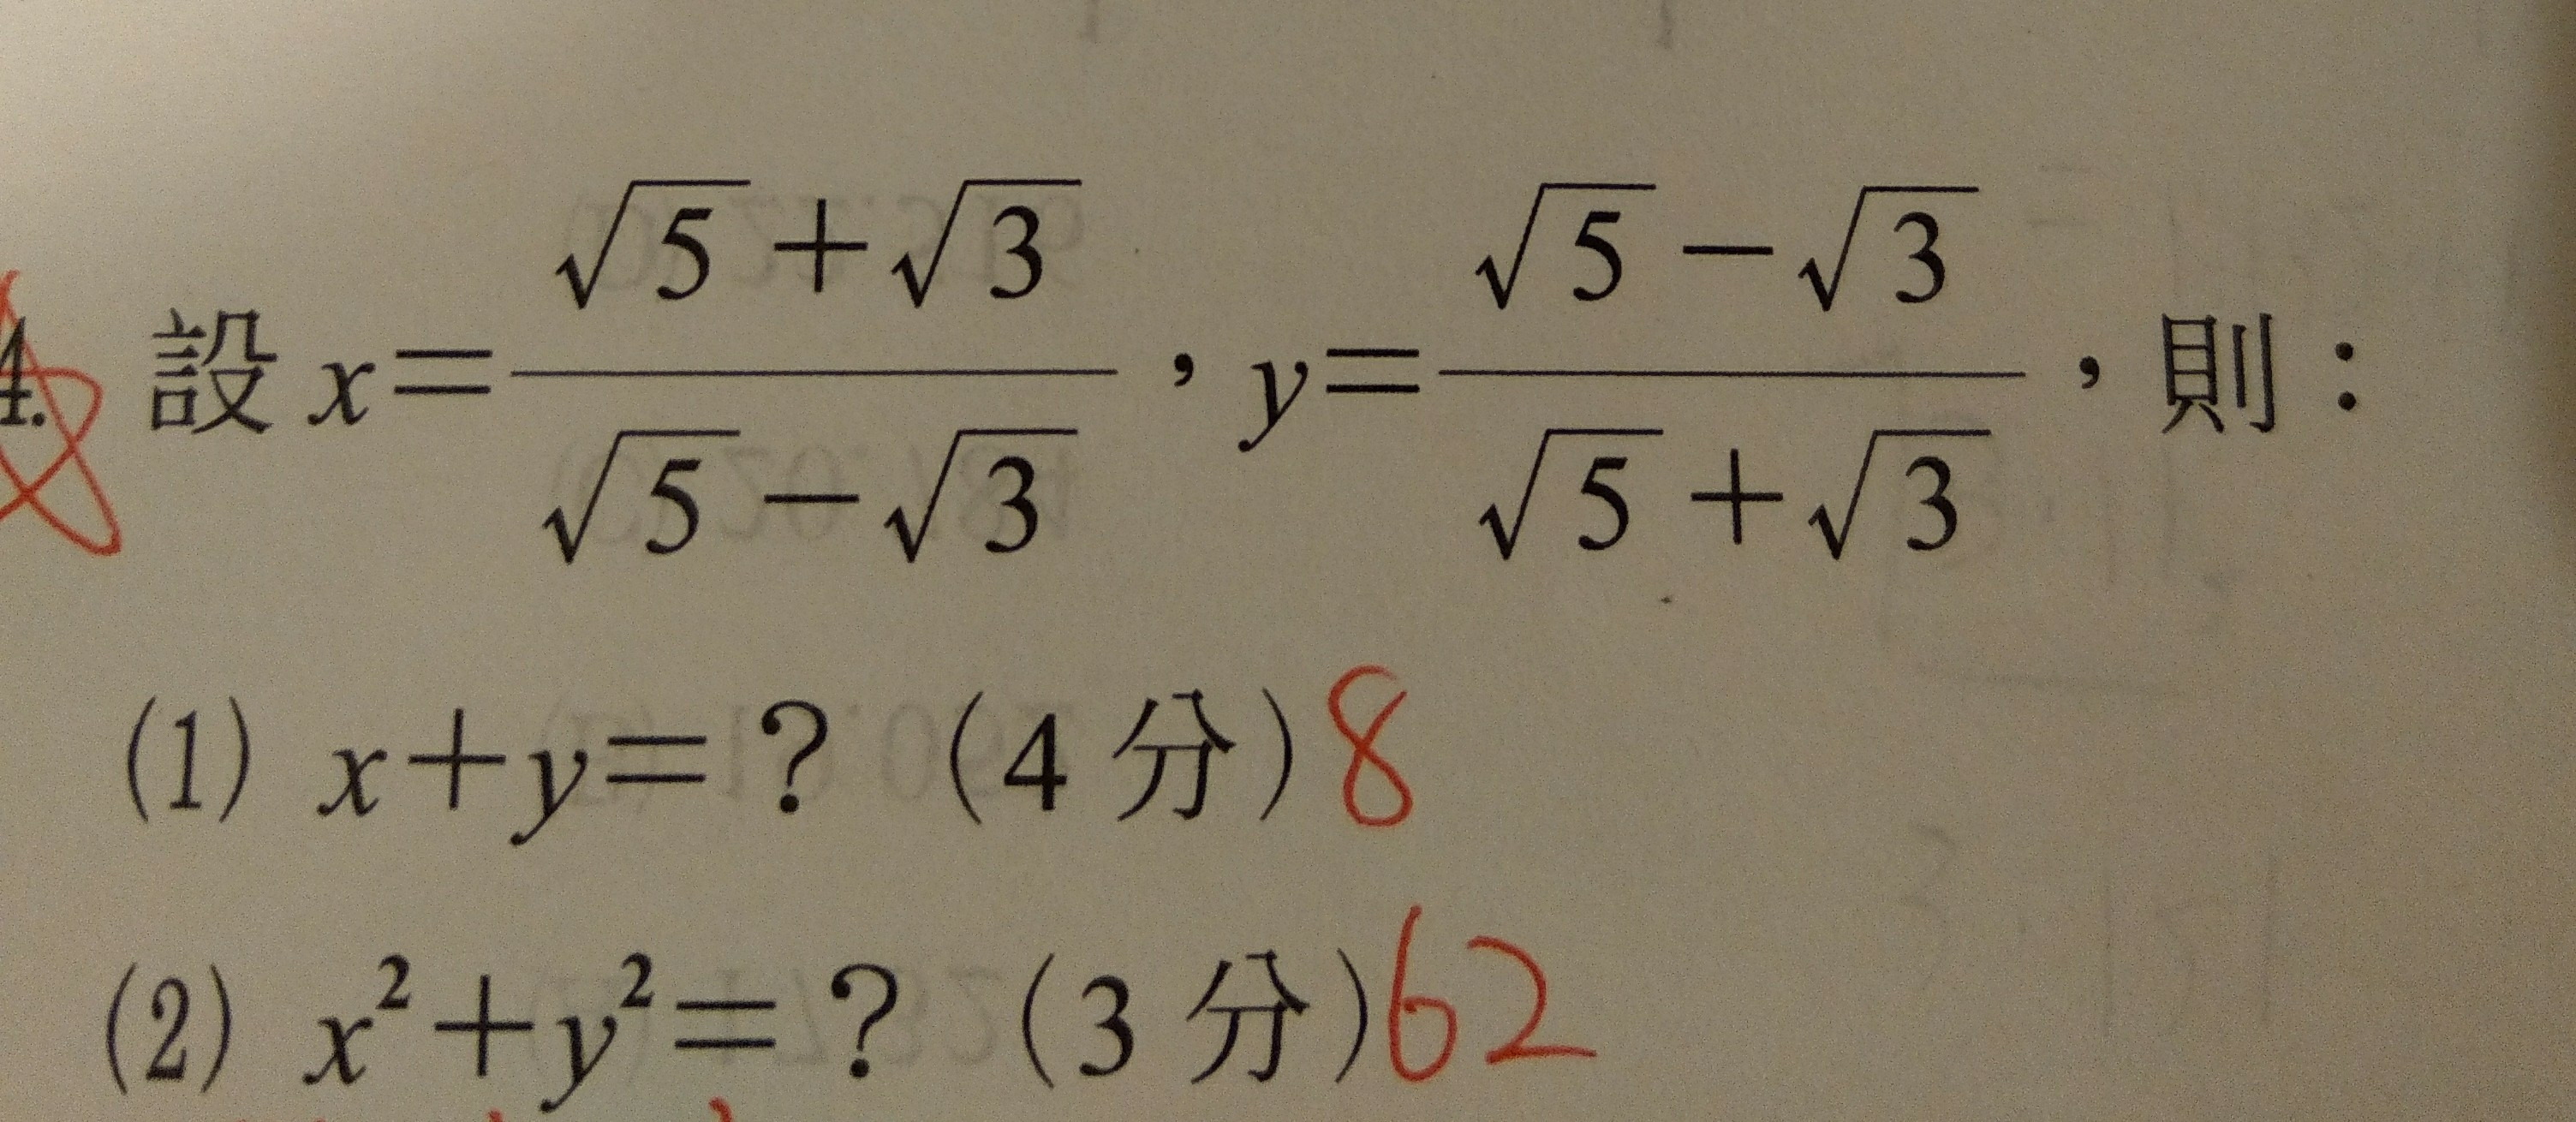 4. 設 x = (√5 + √3)/(√5 − √3) , y = (√5 − √3)/(√5 + √3) , 則：
(1) x + y = ? (4 分) 8
(2) x² + y² = ? (3 分) 62